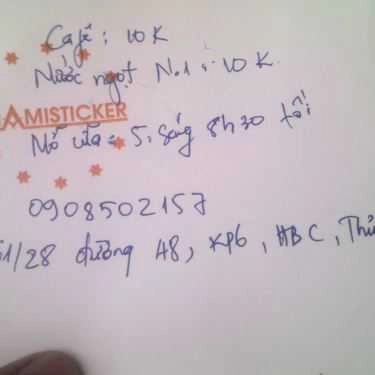 Cafê: 10K
Nước ngọt No.1: 10K
AMISTICKER
Mở cửa: 5h sáng 8h30 tối
0908502157
51/28 đường A8, KP6, HBC, Thủ